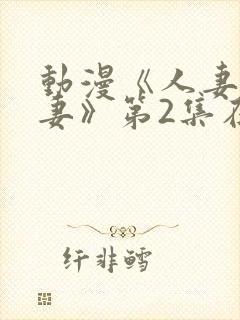 動漫《人妻
妻》第2集在
纤非鳕